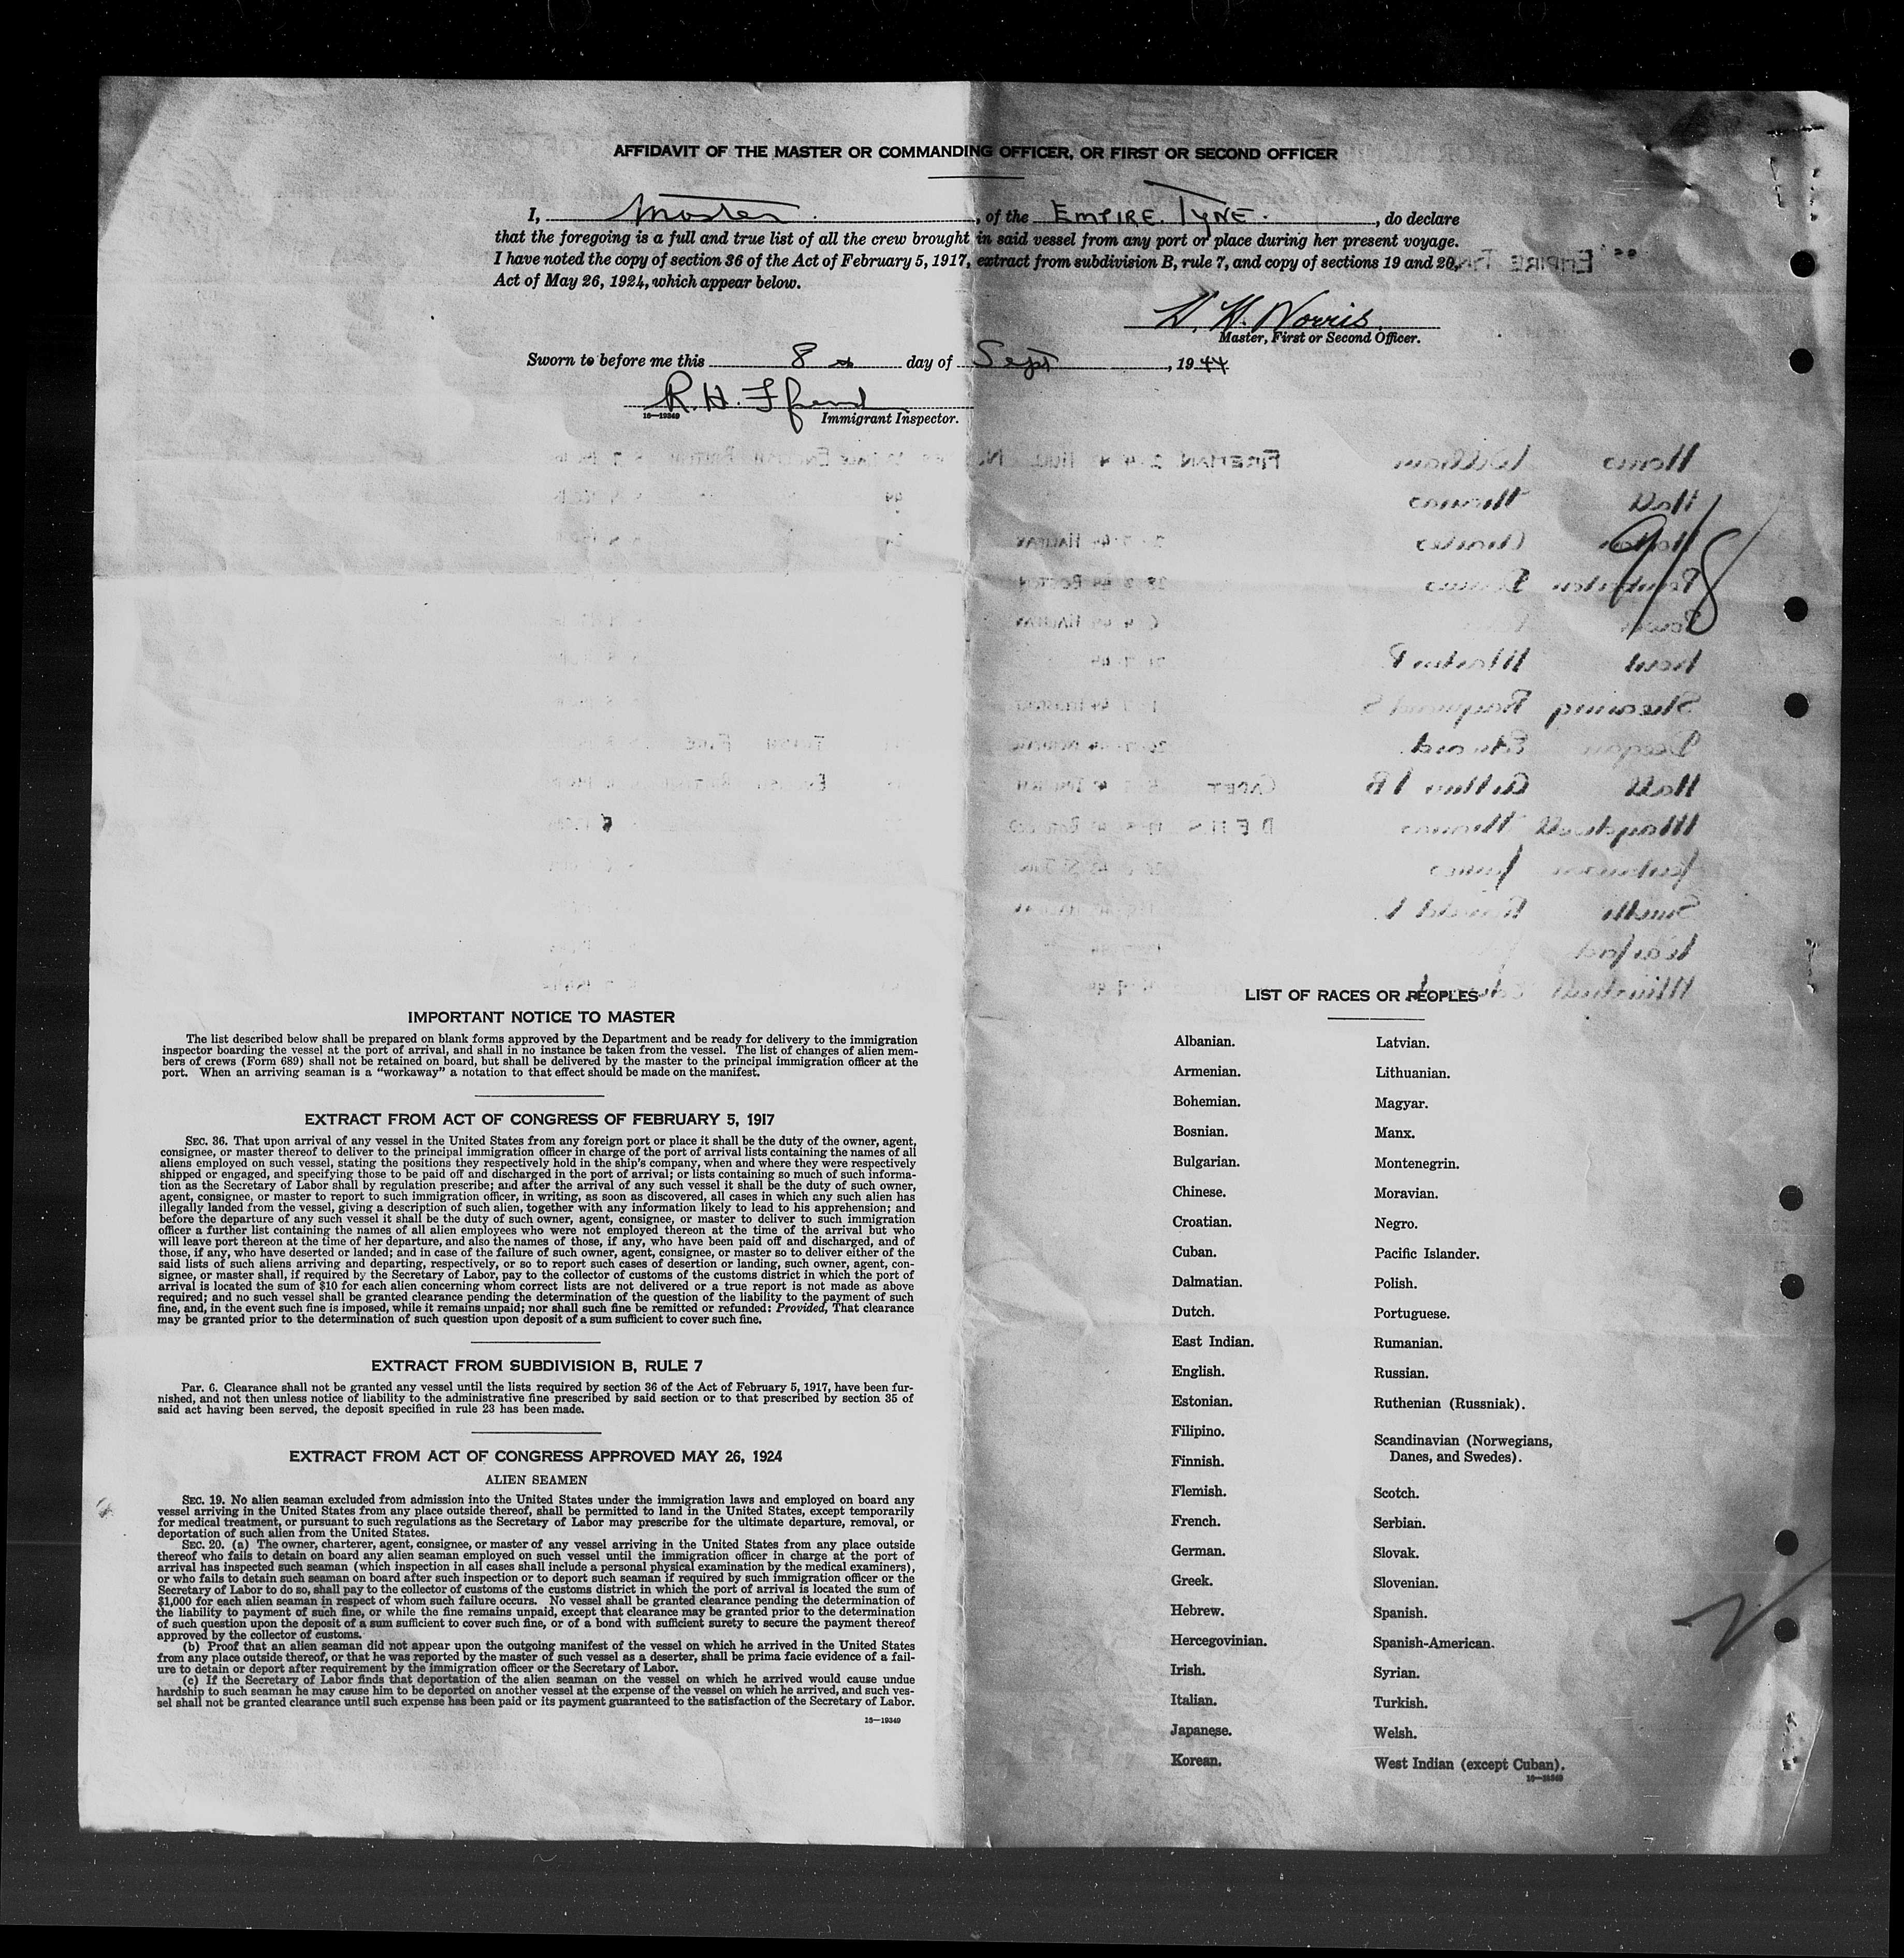 AFFIDAVIT OF THE MASTER OR COMMANDING OFFICER, OR FIRST OR SECOND OFFICER
I, Master, of the EMPIRE TYNE., do declare
that the foregoing is a full and true list of all the crew brought in said vessel from any port or place during her present voyage.
I have noted the copy of section 36 of the Act of February 5, 1917, extract from subdivision B, rule 7, and copy of sections 19 and 20,
Act of May 26, 1924, which appear below.
H. Norris
Master, First or Second Officer.
Sworn to before me this 8 day of Sept, 1944
R. H.
16—19349 Immigrant Inspector.
9/8
IMPORTANT NOTICE TO MASTER
The list described below shall be prepared on blank forms approved by the Department and be ready for delivery to the immigration
inspector boarding the vessel at the port of arrival, and shall in no instance be taken from the vessel. The list of changes of alien mem-
bers of crews (Form 689) shall not be retained on board, but shall be delivered by the master to the principal immigration officer at the
port. When an arriving seaman is a "workaway" a notation to that effect should be made on the manifest.
EXTRACT FROM ACT OF CONGRESS OF FEBRUARY 5, 1917
SEC. 36. That upon arrival of any vessel in the United States from any foreign port or place it shall be the duty of the owner, agent,
consignee, or master thereof to deliver to the principal immigration officer in charge of the port of arrival lists containing the names of all
aliens employed on such vessel, stating the positions they respectively hold in the ship's company, when and where they were respectively
shipped or engaged, and specifying those to be paid off and discharged in the port of arrival; or lists containing so much of such informa-
tion as the Secretary of Labor shall by regulation prescribe; and after the arrival of any such vessel it shall be the duty of such owner,
agent, consignee, or master to report to such immigration officer, in writing, as soon as discovered, all cases in which any such alien has
illegally landed from the vessel, giving a description of such alien, together with any information likely to lead to his apprehension; and
before the departure of any such vessel it shall be the duty of such owner, agent, consignee, or master to deliver to such immigration
officer a further list containing the names of all alien employees who were not employed thereon at the time of the arrival but who
will leave port thereon at the time of her departure, and also the names of those, if any, who have been paid off and discharged, and of
those, if any, who have deserted or landed; and in case of the failure of such owner, agent, consignee, or master so to deliver either of the
said lists of such aliens arriving and departing, respectively, or so to report such cases of desertion or landing, such owner, agent, con-
signee, or master shall, if required by the Secretary of Labor, pay to the collector of customs of the customs district in which the port of
arrival is located the sum of $10 for each alien concerning whom correct lists are not delivered or a true report is not made as above
required; and no such vessel shall be granted clearance pending the determination of the question of the liability to the payment of such
fine, and, in the event such fine is imposed, while it remains unpaid; nor shall such fine be remitted or refunded: Provided, That clearance
may be granted prior to the determination of such question upon deposit of a sum sufficient to cover such fine.
EXTRACT FROM SUBDIVISION B, RULE 7
Par. 6. Clearance shall not be granted any vessel until the lists required by section 36 of the Act of February 5, 1917, have been fur-
nished, and not then unless notice of liability to the administrative fine prescribed by said section or to that prescribed by section 35 of
said act having been served, the deposit specified in rule 23 has been made.
EXTRACT FROM ACT OF CONGRESS APPROVED MAY 26, 1924
ALIEN SEAMEN
SEC. 19. No alien seaman excluded from admission into the United States under the immigration laws and employed on board any
vessel arriving in the United States from any place outside thereof, shall be permitted to land in the United States, except temporarily
for medical treatment, or pursuant to such regulations as the Secretary of Labor may prescribe for the ultimate departure, removal, or
deportation of such alien from the United States.
SEC. 20. (a) The owner, charterer, agent, consignee, or master of any vessel arriving in the United States from any place outside
thereof who fails to detain on board any alien seaman employed on such vessel until the immigration officer in charge at the port of
arrival has inspected such seaman (which inspection in all cases shall include a personal physical examination by the medical examiners),
or who fails to detain such seaman on board after such inspection or to deport such seaman if required by such immigration officer or the
Secretary of Labor to do so, shall pay to the collector of customs of the customs district in which the port of arrival is located the sum of
$1,000 for each alien seaman in respect of whom such failure occurs. No vessel shall be granted clearance pending the determination of
the liability to payment of such fine, or while the fine remains unpaid, except that clearance may be granted prior to the determination
of such question upon the deposit of a sum sufficient to cover such fine, or of a bond with sufficient surety to secure the payment thereof
approved by the collector of customs.
(b) Proof that an alien seaman did not appear upon the outgoing manifest of the vessel on which he arrived in the United States
from any place outside thereof, or that he was reported by the master of such vessel as a deserter, shall be prima facie evidence of a fail-
ure to detain or deport after requirement by the immigration officer or the Secretary of Labor.
(c) If the Secretary of Labor finds that deportation of the alien seaman on the vessel on which he arrived would cause undue
hardship to such seaman he may cause him to be deported on another vessel at the expense of the vessel on which he arrived, and such ves-
sel shall not be granted clearance until such expense has been paid or its payment guaranteed to the satisfaction of the Secretary of Labor.
16—19349
LIST OF RACES OR PEOPLES
Albanian.
Armenian.
Bohemian.
Bosnian.
Bulgarian.
Chinese.
Croatian.
Cuban.
Dalmatian.
Dutch.
East Indian.
English.
Estonian.
Filipino.
Finnish.
Flemish.
French.
German.
Greek.
Hebrew.
Hercegovinian.
Irish.
Italian.
Japanese.
Korean.
Latvian.
Lithuanian.
Magyar.
Manx.
Montenegrin.
Moravian.
Negro.
Pacific Islander.
Polish.
Portuguese.
Rumanian.
Russian.
Ruthenian (Russniak).
Scandinavian (Norwegians,
Danes, and Swedes).
Scotch.
Serbian.
Slovak.
Slovenian.
Spanish.
Spanish-American.
Syrian.
Turkish.
Welsh.
West Indian (except Cuban).
16—19349